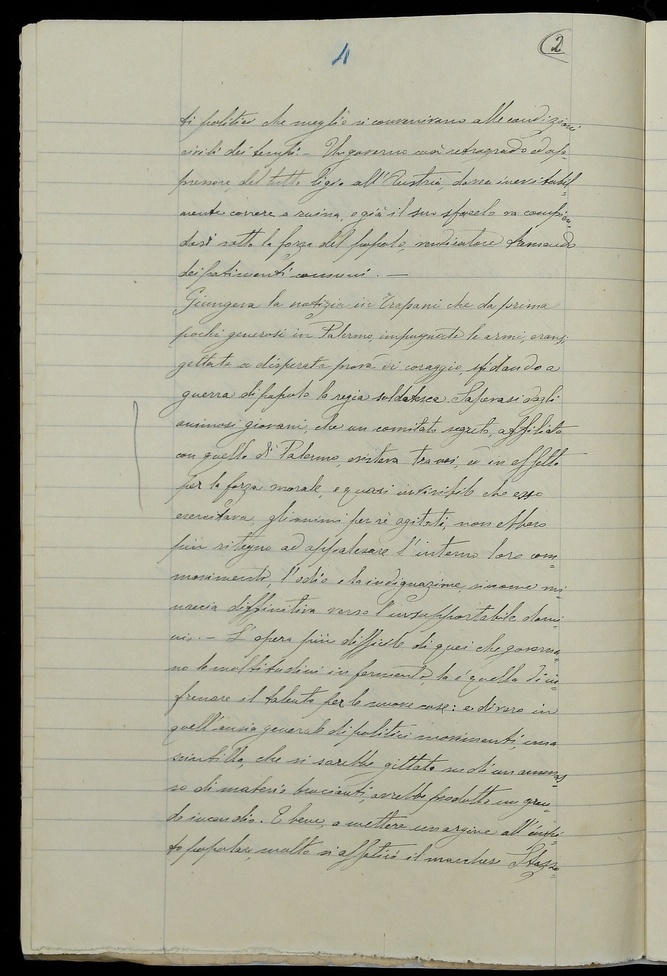 2
4
ti politici che meglio si convenivano alle condizioni
civili dei tempi. — Un governo così retrogrado ed op-
pressore, del tutto ligio all'Austria, dovea inevitabil-
mente correre a ruina, e già il suo sfacelo va compien-
dosi sotto la forza del popolo, vendicatore tremendo
dei patimenti comuni. —
Giungeva la notizia in Trapani che da prima
pochi generosi in Palermo, impugnate le armi, eransi
gettati a disperata prova di coraggio, sfidando a
guerra di popolo la regia soldatesca. Sapevasi dagli
animosi giovani, che un comitato segreto, affiliato
con quello di Palermo, esisteva tra noi, ed in effetto
per la forza morale, e quasi invisibile che esso
esercitava, gli animi per sè agitati, non ebbero
più ritegno ad appalesare l'interno loro com-
movimento, l'odio e la indignazione, siccome mi-
naccia diffinitiva verso l'insupportabile domi-
nio. — L'opera più difficile di quei che governa-
no le moltitudini in fermento, la è quella di in-
frenare il talento per le nuove cose: e di vero in
quell'ansia generale di politici movimenti, una
scintilla, che si sarebbe gittata su di un ammas-
so di materie brucianti, avrebbe prodotto un gran-
de incendio. E bene, a mettere un argine all'impe-
to popolare, molto si affaticò il marchese Stazzo-